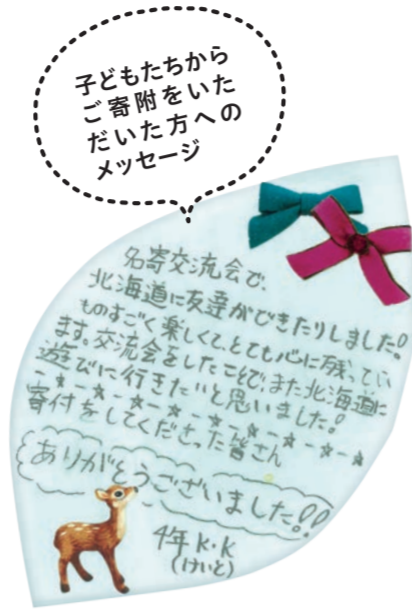 子どもたちから
ご寄附をいた
だいた方への
メッセージ
名寄交流会で、
北海道に友達ができたりしました!
ものすごく楽しくて、とても心に残ってい
ます。交流会をしたことで、また北海道に
遊びに行きたいと思いました!
寄付をしてくださった皆さん
ありがとうございました!!
4年 K・K
(けいと)